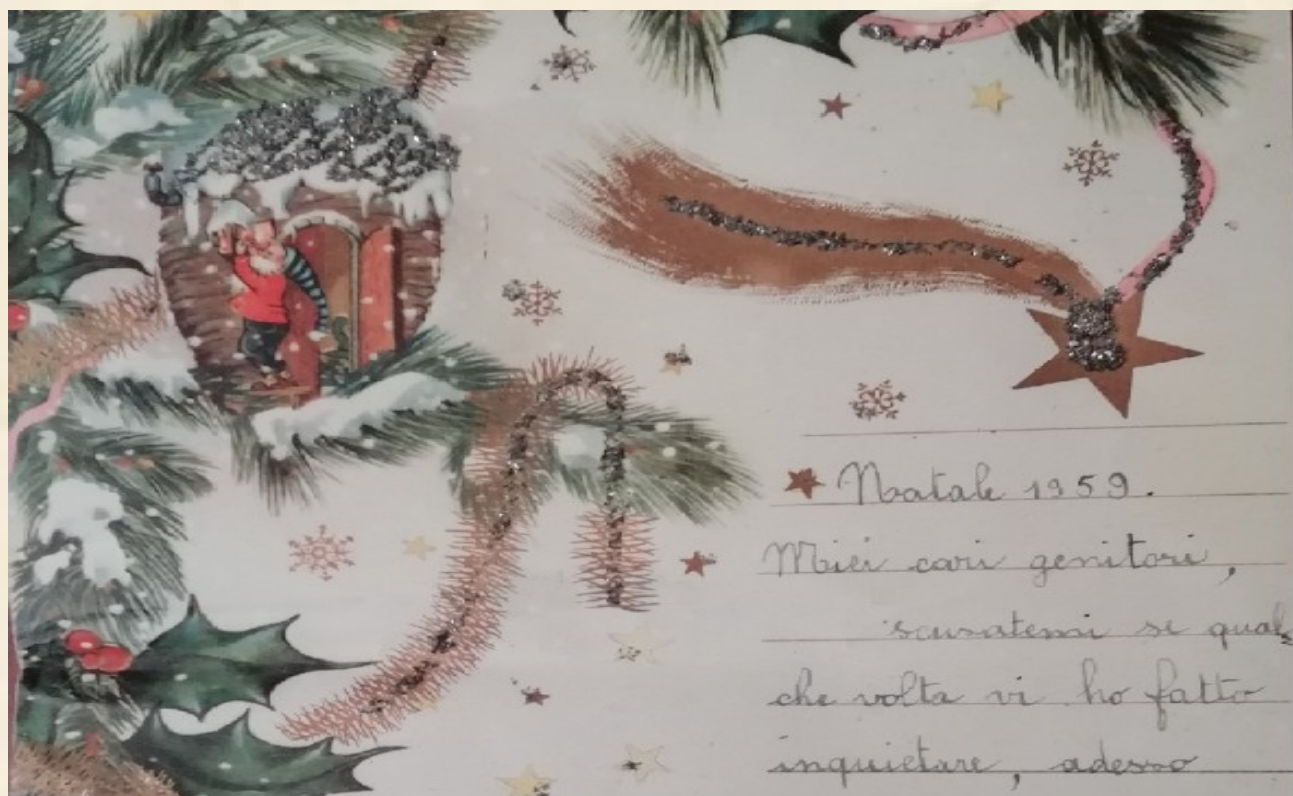 Natale 1959.
Miei cari genitori,
scusatemi se qual
che volta vi ho fatto
inquietare, adesso